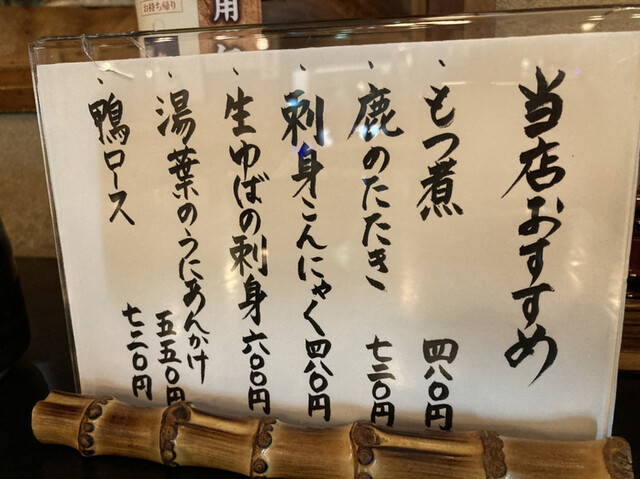 当店おすすめ
、もつ煮 四八〇円
、鹿のたたき 七二〇円
、刺身こんにゃく 四八〇円
、生ゆばの刺身 六〇〇円
、湯葉のうにあんかけ 五五〇円
、鴨ロース 七二〇円
お持ち帰り
用